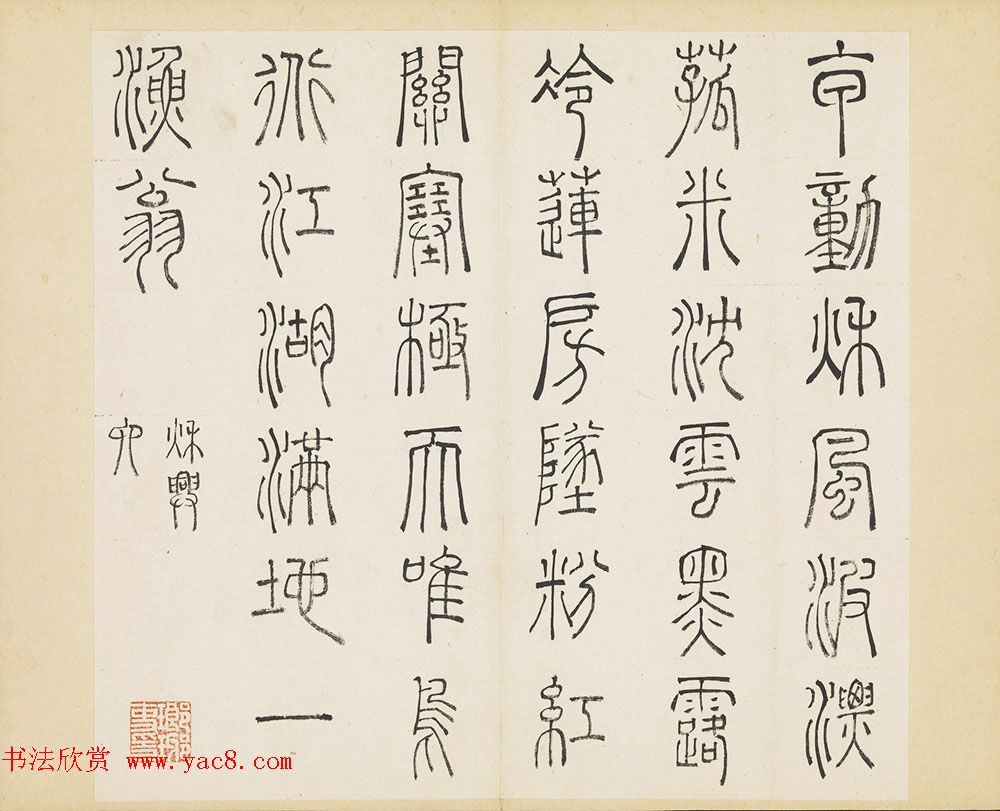 甲動秋風波漂
菰米沈雲黑露
冷蓮房墜粉紅
關塞極天唯鳥
道江湖滿地一
漁翁
秋興
书法欣赏 www.yac8.com